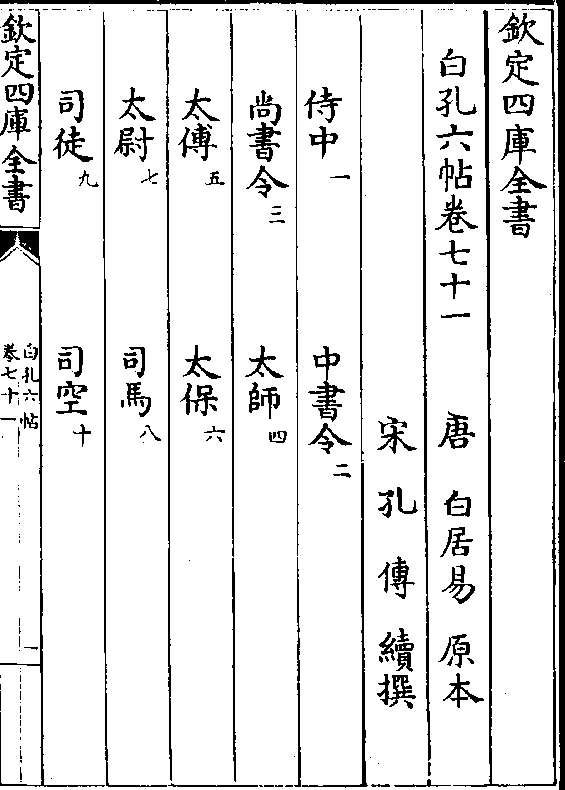 欽定四庫全書
白孔六帖卷七十一　唐　白居易　原本
宋　孔　傳　續撰
侍中一　中書令二
尚書令三　太師四
太傅五　太保六
太尉七　司馬八
司徒九　司空十
欽定四庫全書
白孔六帖
卷七十一
一